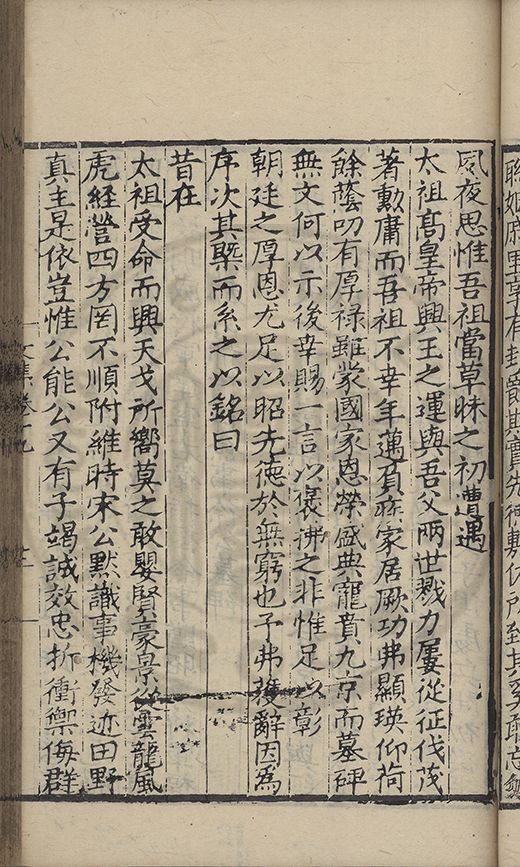 聯姻戚里享有封爵其實先德敷佑所到其奚敢忘
夙夜思惟吾祖當草昧之初遭遇
太祖高皇帝興王之運與吾父兩世戮力屢從征伐茂
著勳庸而吾祖不幸年邁負痾家居厥功弗顯瑛仰荷
餘蔭叨有厚祿雖蒙國家恩榮盛典寵賁九京而墓碑
無文何以示後幸賜一言以褒揚之非惟足以彰
朝廷之厚恩尤足以昭先德於無窮也予弗獲辭因為
序次其槩而系之以銘曰
昔在
太祖受命而興天戈所嚮莫之敢嬰賢豪景從雲龍風
虎經營四方罔不順附維時宋公默識事機發迹田野
真主是依豈惟公能公又有子竭誠效忠折衝禦侮群
文集卷十九